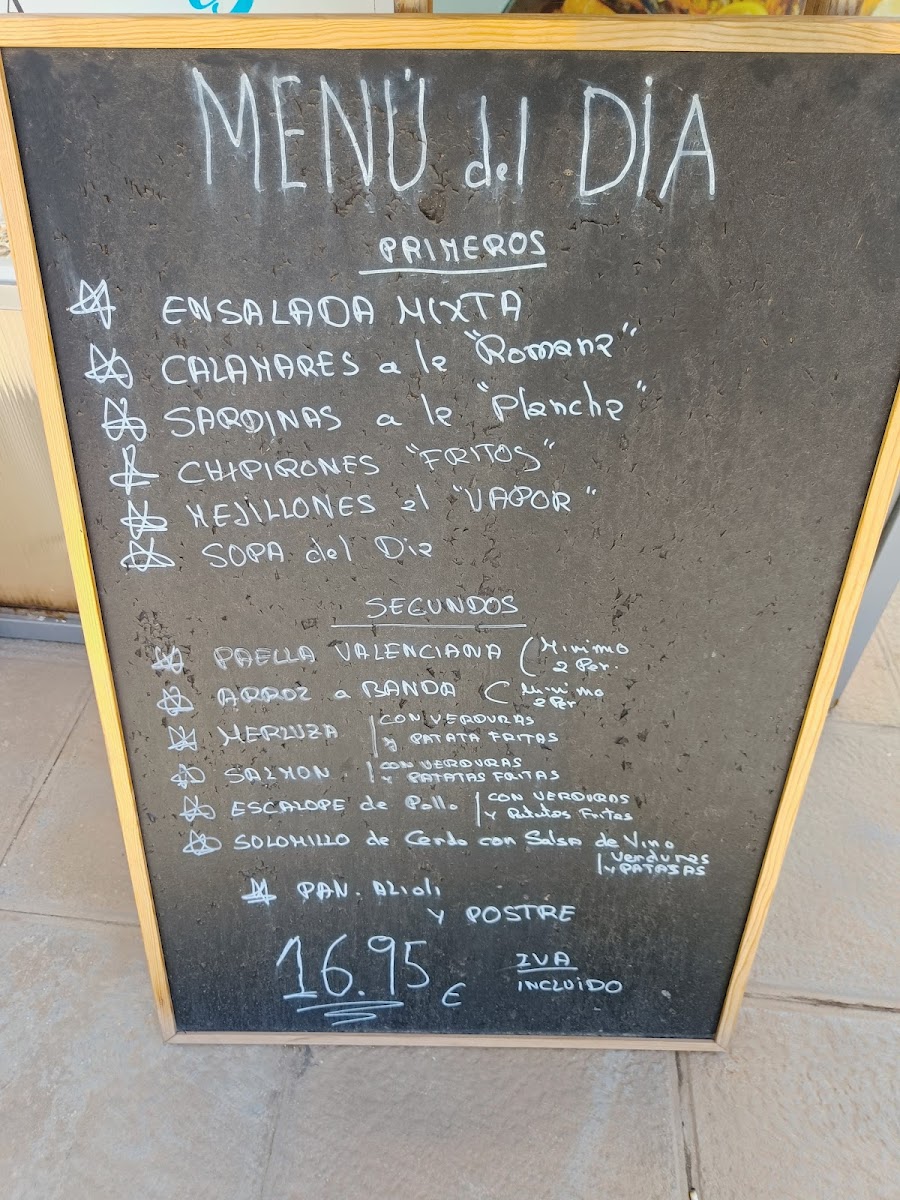 MENÚ del DÍA
PRIMEROS
ENSALADA MIXTA
CALAMARES a la "Romana"
SARDINAS a la "Plancha"
CHIPIRONES "FRITOS"
MEJILLONES al "VAPOR"
SOPA del Dia
SEGUNDOS
PAELLA VALENCIANA (Minimo
2 Per.
ARROZ a BANDA (Minimo
2 Per
MERLUZA CON VERDURAS
y PATATA FRITAS
SALMON CON VERDURAS
y PATATAS FRITAS
ESCALOPE de Pollo CON VERDURAS
y Patatas Fritas
SOLOMILLO de Cerdo con Salsa de Vino
Verduras
y PATATAS
PAN. ALIOLI
Y POSTRE
16.95 € IVA
INCLUIDO